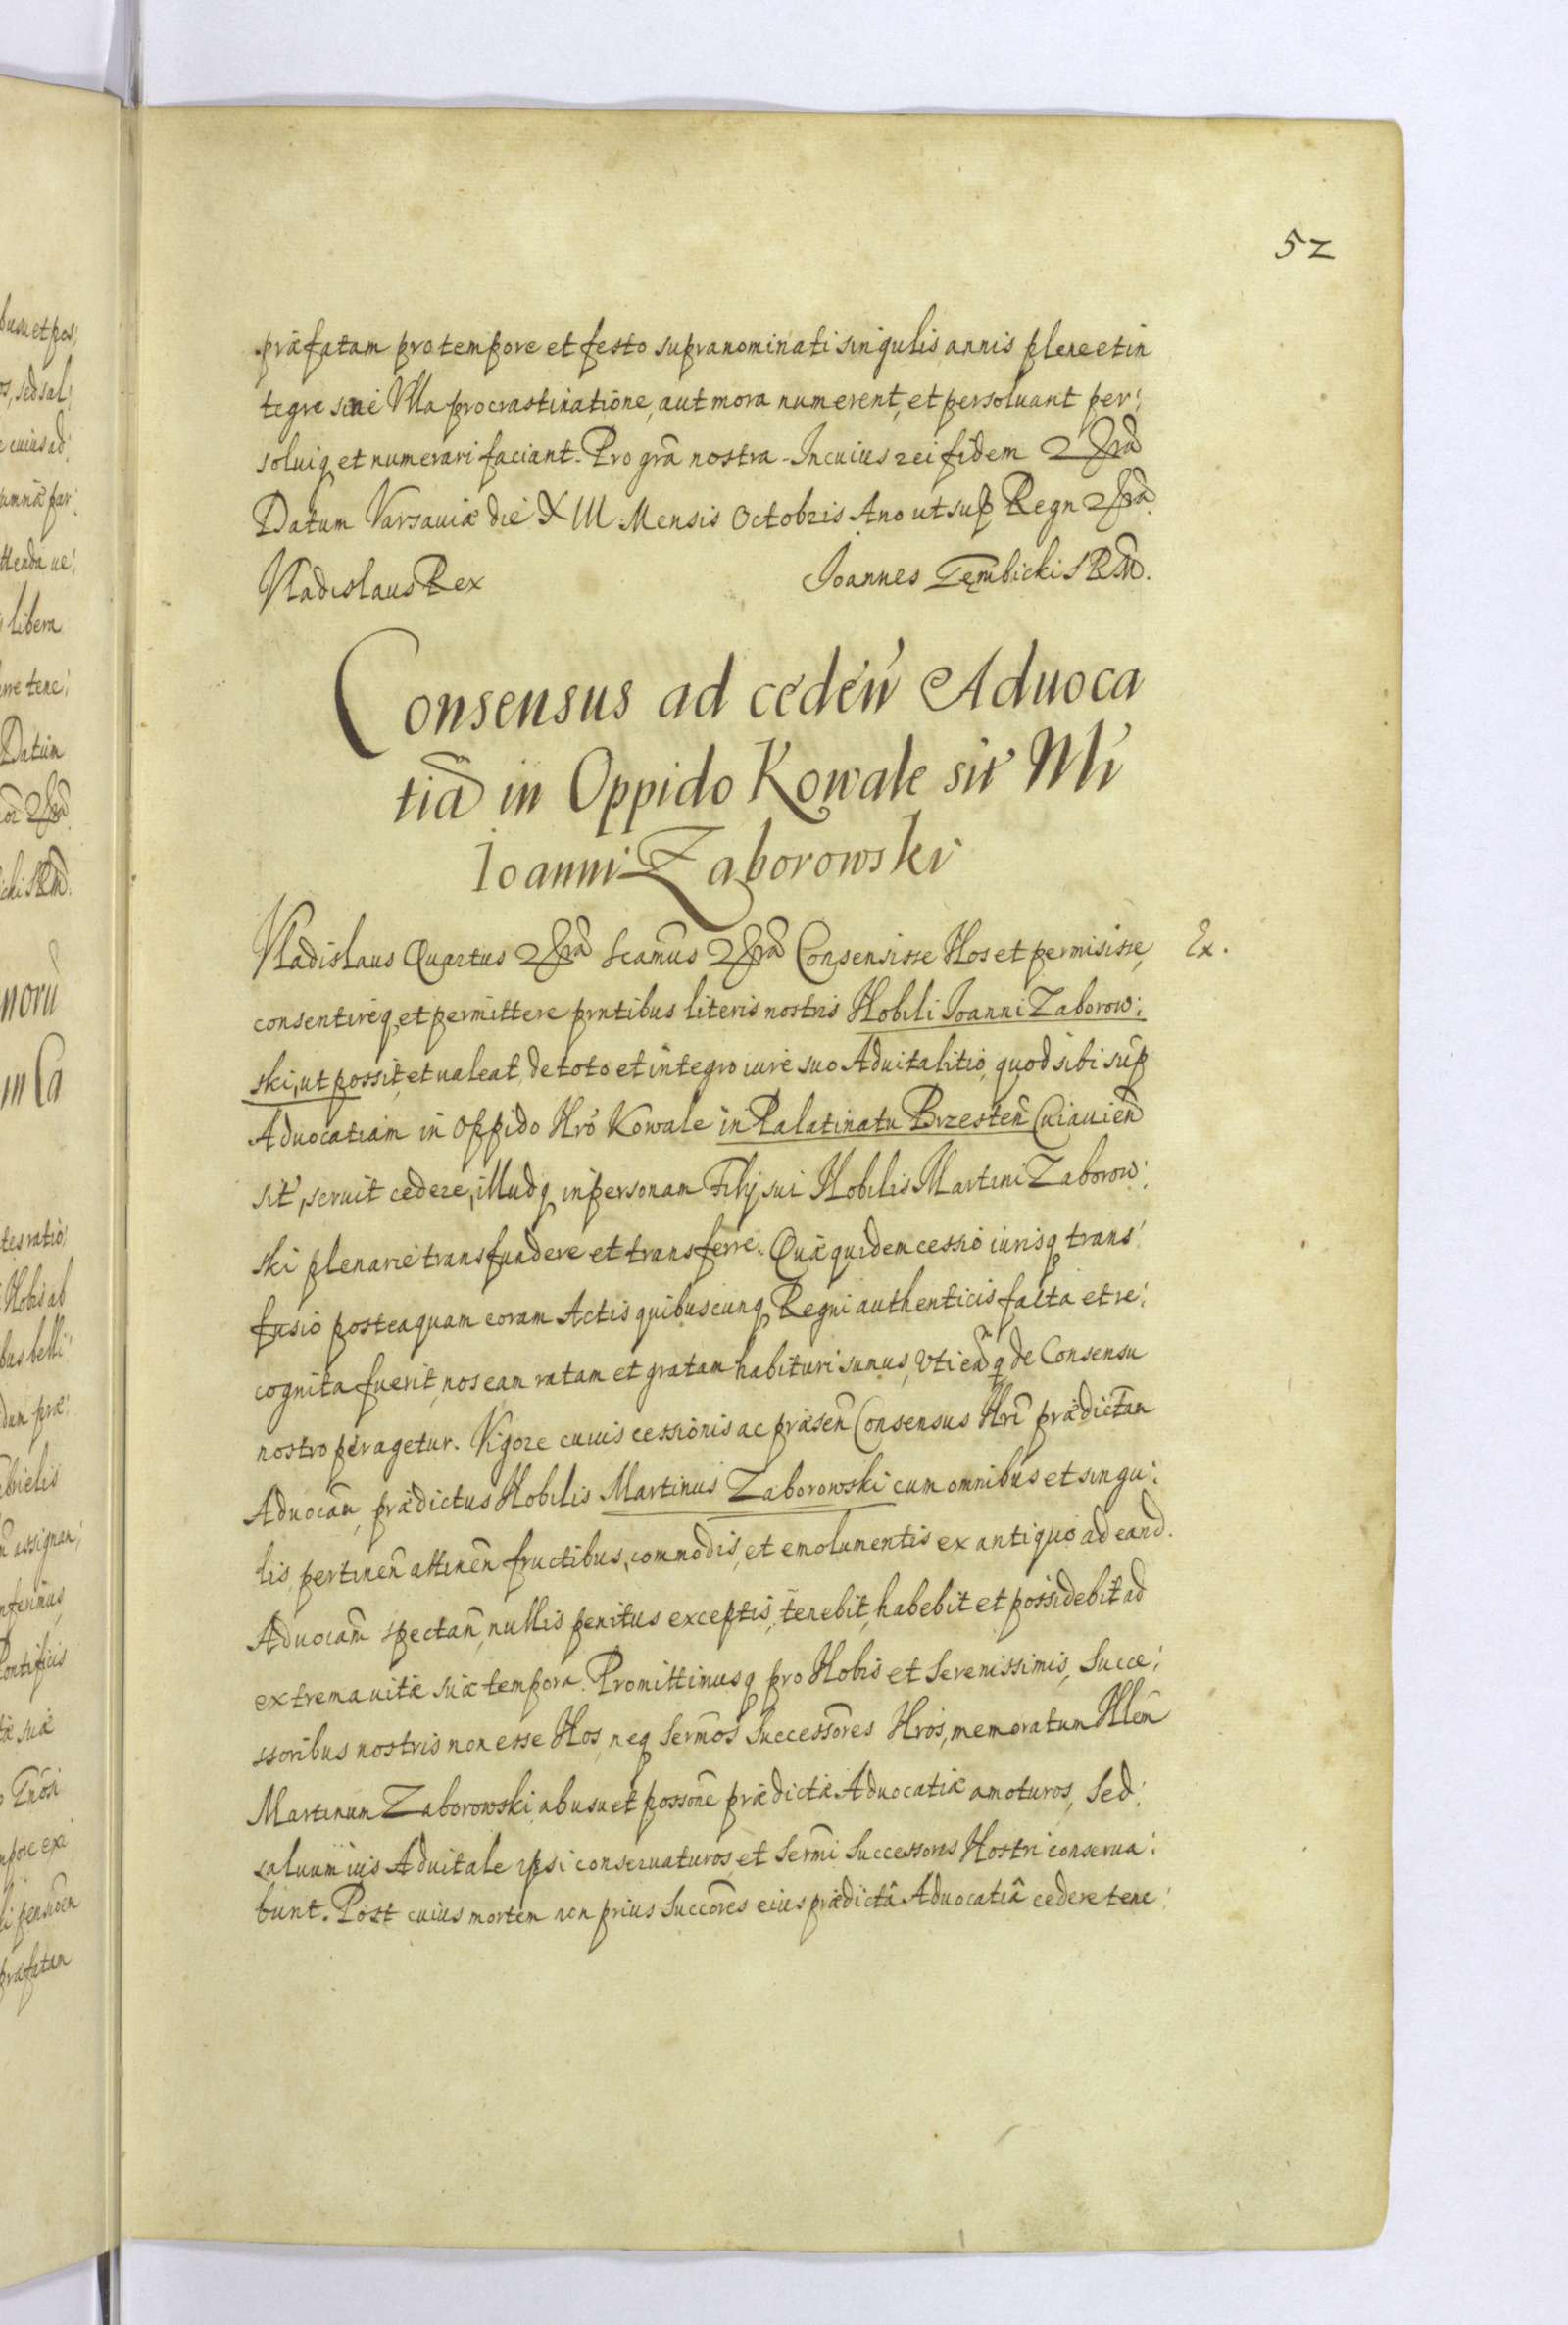 52
præfatam pro tempore et festo supranominati singulis annis plene et in
tegre sine Ulla procrastinatione, aut mora numerent, et persoluant per:
soluiq et numerari faciant. Pro grã nostra. In cuius rei fidem
Datum Varsauiæ die XIII Mensis Octobris Ano ut sup Regn
Vladislaus Rex Joannes Gembicki SRM.
Consensus ad ceden Aduoca
tiã in Oppido Kowale sit Nli
Ioanni Zaborowski
Vladislaus Quartus Scamus Consensisse Nos et permisisse, Ex.
consentireq, et permittere pntibus literis nostris Nobili Ioanni Zaborow:
ski, ut possit, et ualeat, de toto et integro iure suo Aduitalitio, quod sibi sup
Aduocatiam in Oppido Nro Kowale in Palatinatu Brzesteñ Cuiauieñ
sit, seruit cedere, illudq in personam Filij sui Nobilis Martini Zaborow:
ski plenarie transfundere et transferre. Quæ quidem cessio iurisq trans:
fusio posteaquam coram Actis quibuscunq Regni authenticis facta et re:
cognita fuerit, nos eam ratam et gratam habituri sumus, Uti eaq de Consensu
nostro peragetur. Vigore cuius cessionis ac præseñ Consensus Nri prædictam
Aduocañ, prædictus Nobilis Martinus Zaborowski cum omnibus et singu:
lis, pertineñ attineñ fructibus, commodis, et emolumentis ex antiquo ad eand.
Aduocam̃ spectañ, nullis penitus exceptis, tenebit, habebit et possidebit ad
extrema uitæ suæ tempora. Promittimusq pro Nobis et Serenissimis, Succe:
ssoribus nostris non esse Nos, neq Serm̃os Successõres Nros, memoratum Nlem̃
Martinum Zaborowski, ab usu et possoñe prædictæ Aduocatiæ amoturos, Sed:
saluum ius Aduitale ipsi conseruaturos, et Serm̃i Successores Nostri conserua:
bunt. Post cuius mortem non prius Succõres eius prædictâ Aduocatiâ cedere tene: